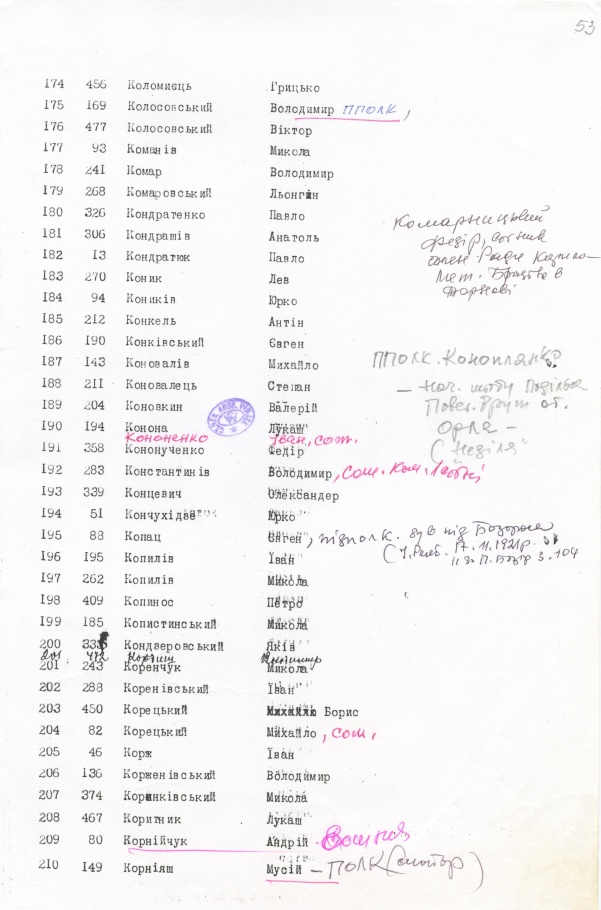 53
174 456 Коломиєць Грицько
175 169 Колосовський Володимир ППОЛК,
176 477 Колосовський Віктор
177 93 Команів Микола
178 241 Комар Володимир
179 268 Комаровський Льонгін
180 326 Кондратенко Павло
Комарницький
181 306 Кондрашів Анатоль
Федір, сотник
182 13 Кондратюк Павло
член Ради
183 270 Коник Лев
Мет. Братства в
184 94 Коників Юрко
Тарнові
185 212 Конкель Антін
186 190 Конківський Євген
187 143 Коновалів Михайло
ППОЛК. Коноплянко
188 211 Коновалець Степан
— Нач. штабу
189 204 Коновкин Валерій
Повст. Групи от.
190 194 Конона Лукаш
Орла —
Кононенко Іван, сот.
191 358 Конончученко Федір
("Неділя"
192 283 Константинів Володимир, сот.
193 339 Концевич Олександер
194 51 Кончухідзе Юрко
195 88 Копац Євген, підполк. був під Базаром
17.11.1921р.
196 195 Копилів Іван
з. 104
197 262 Копилів Микола
198 409 Копинос Петро
199 185 Копистинський Микола
200 333 Кондзеровський Яків
201 472 Володимир
201 243 Коренчук Микола
202 288 Коренівський Іван
203 450 Корецький Михайло Борис
204 82 Корецький Михайло, сот.
205 46 Корж Іван
206 136 Корженівський Володимир
207 374 Коринківський Микола
208 467 Коритник Лукаш
209 80 Корнійчук Андрій
210 149 Корніяш Мусій — ПОЛК